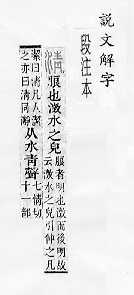 説文解字
段注本
清 朖也澂水之皃 朖者明也澂而後明故云澂水之皃引伸之凡
潔曰清凡人潔之亦曰清同瀞 从水青聲 七情切十一部